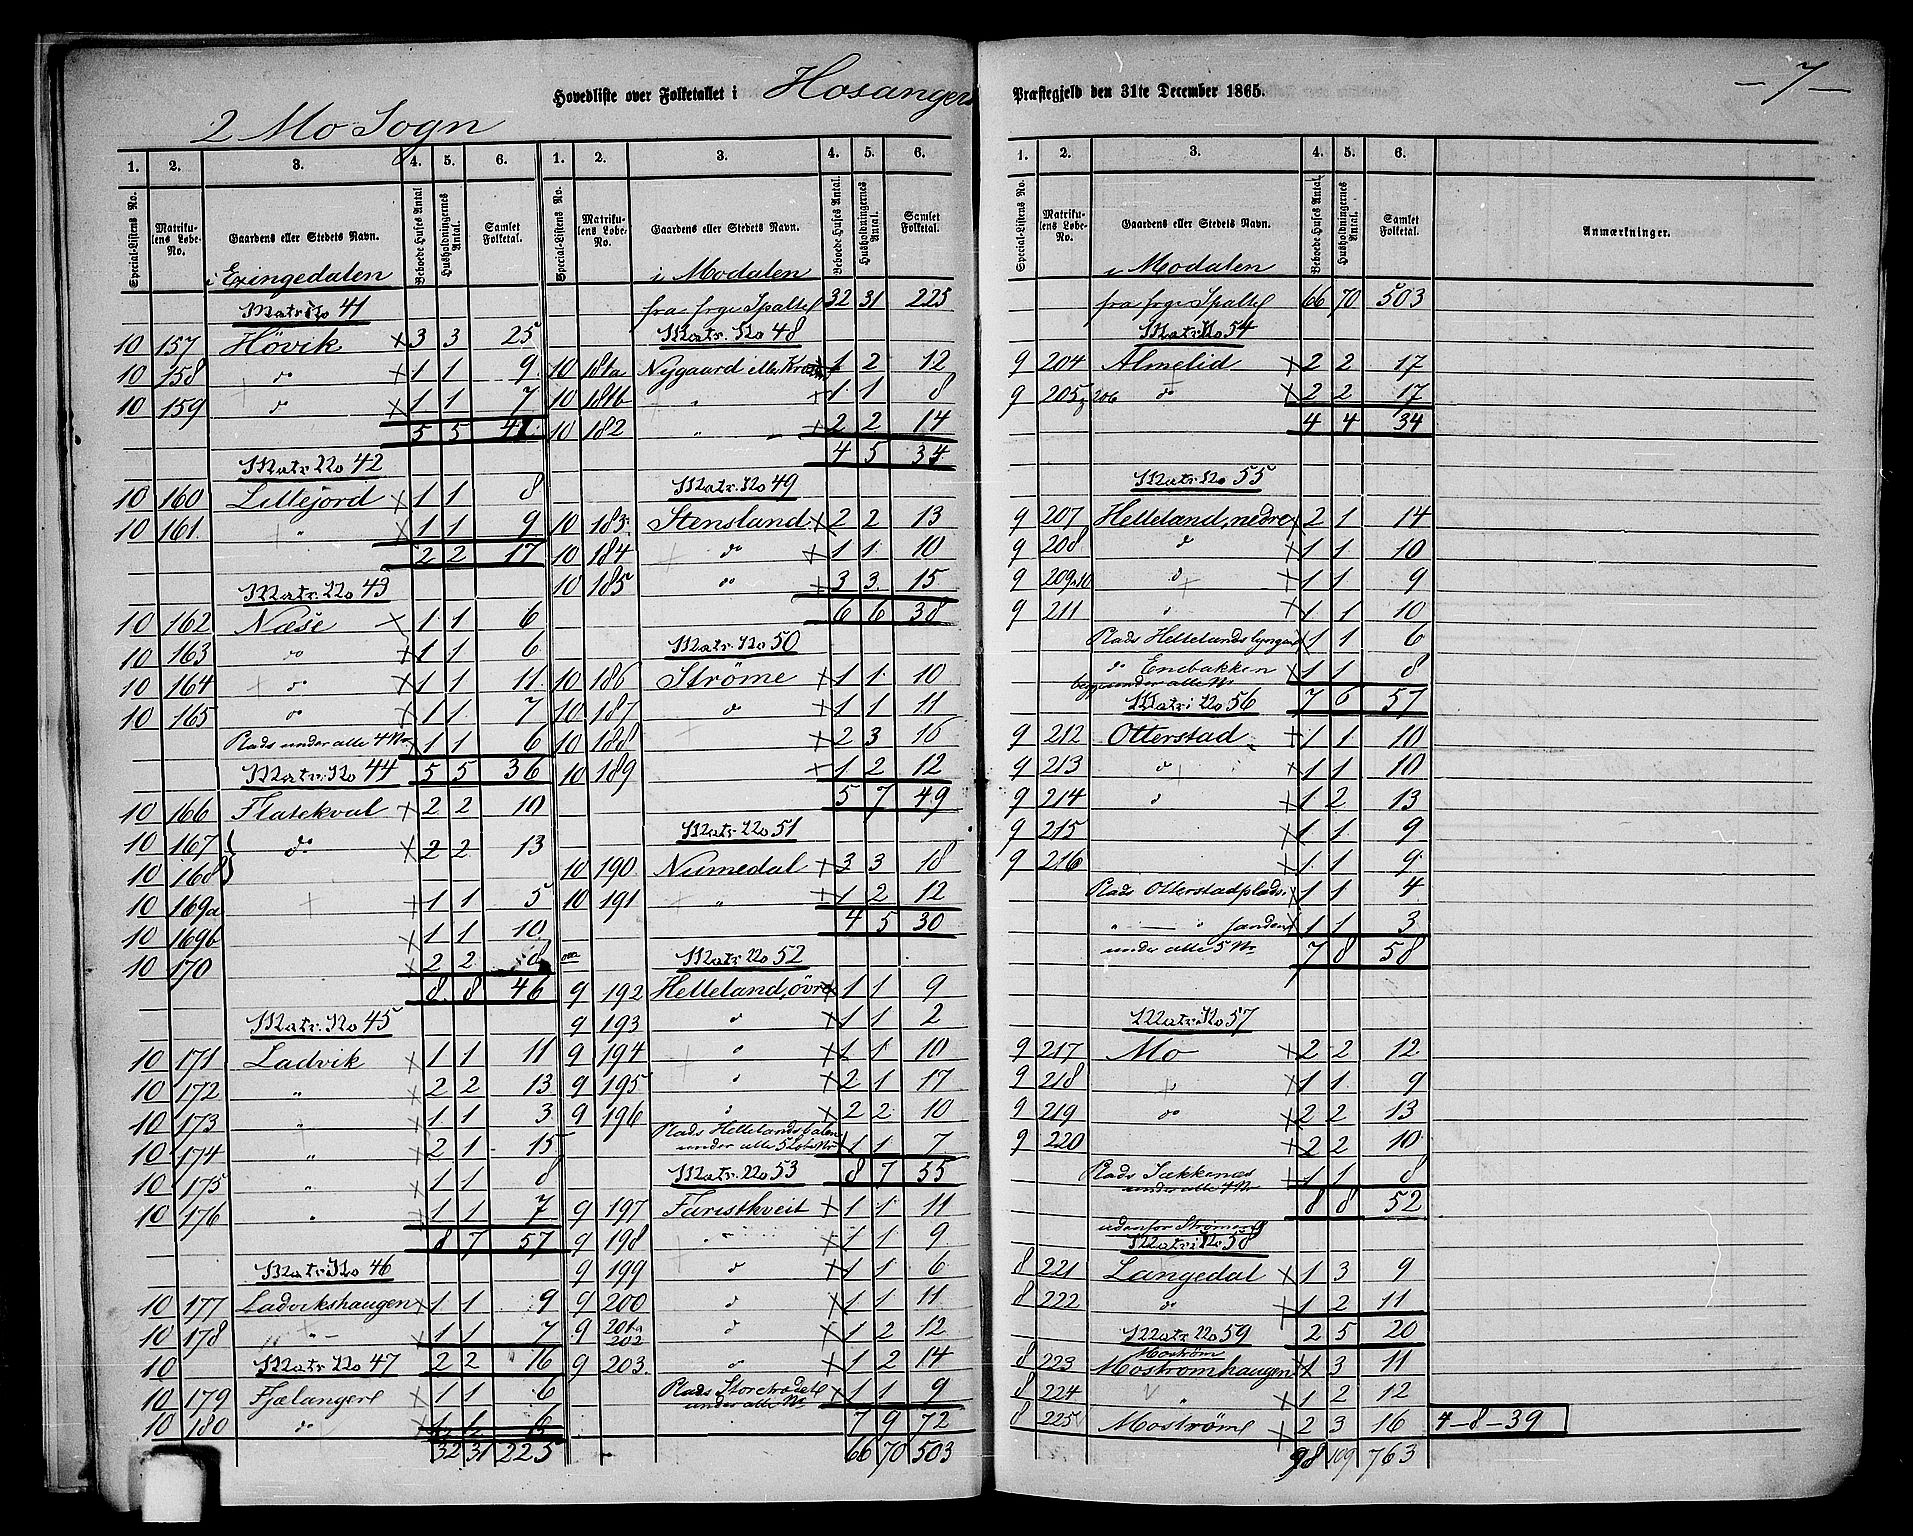 Hovedliste over Folketallet i Hosangers Præstegjeld den 31te December 1865.
— 7 —
2 Mo Sogn
1. 2. 3. 4. 5. 6.
Special-Listens No. Matrikulens Løbe-No. Gaardens eller Stedets Navn. Beboede Huses Antal Husholdningernes Antal. Samlet Folketal.
i Exingedalen
Matr No 41
10 157 Hövik × 3 3 25
10 158 do × 1 1 9
10 159 do × 1 1 7
5 5 41
Matr No 42
10 160 Lillejord × 1 1 8
10 161 " × 1 1 9
2 2 17
Matr. No 43
10 162 Næse × 1 1 6
10 163 do × 1 1 6
10 164 do × 1 1 11
10 165 do × 1 1 7
Plads under alle 4 No × 1 1 6
Matr. No 44 5 5 36
10 166 Flatekval × 2 2 10
10 167 } do × 2 2 13
10 168
10 169a × 1 1 5
10 169b × 1 1 10
10 170 × 2 2 8
8 8 46
Matr. No 45
10 171 Ladvik × 1 1 11
10 172 " × 2 2 13
10 173 × 1 1 3
10 174 " × 2 1 15
10 175 " × 1 1 8
10 176 " × 1 1 7
8 7 57
Matr. No 46
10 177 Ladvikshaugen × 1 1 9
10 178 " × 1 1 7
10 Matr No 47 2 2 16
10 179 Fjælangere × 1 1 6
10 180 do × 1 1 6
32 31 225
1. 2. 3. 4. 5. 6.
Special-Listens No. Matrikulens Løbe-No. Gaardens eller Stedets Navn. Beboede Huses Antal. Husholdningernes Antal. Samlet Folketal.
i Modalen
fra frge Spalte 32 31 225
Matr. No 48
10 181a Nygaard elle × 1 2 12
10 181b " × 1 1 8
10 182 " × 2 2 14
4 5 34
Matr. No 49
10 183 Stensland × 2 2 13
10 184 do × 1 1 10
10 185 do × 3 3 15
6 6 38
Matr. No 50
10 186 Ströme × 1 1 10
10 187 do × 1 1 11
10 188 × 2 3 16
10 189 × 1 2 12
5 7 49
Matr No 51
10 190 Numedal × 3 3 18
10 191 " × 1 2 12
4 5 30
Matr No 52
9 192 Helleland, övre × 1 1 9
9 193 do × 1 1 2
9 194 " × 1 1 10
9 195 " × 2 1 17
9 196 " × 2 2 10
Plads Hellelandsdalen
under alle 5 Løbe No × 1 1 7
Matr. No 53 8 7 55
9 197 Faristkveit × 1 1 11
9 198 " × 1 1 9
9 199 do × 1 1 6
9 200 do × 1 1 11
9 201 202 do × 1 2 12
9 203 do × 1 2 14
Plads
under alle No × 1 1 9
7 9 72
66 70 503
1. 2. 3. 4. 5. 6.
Special-Listens No. Matrikulens Løbe-No. Gaardens eller Stedets Navn. Beboede Huses Antal. Husholdningernes Antal. Samlet Folketal. Anmærkninger.
i Modalen
fra frge Spalte 66 70 503
Matr No 54
9 204 Almelid × 2 2 17
9 205, 206 do × 2 2 17
4 4 34
Matr No 55
9 207 Helleland, nedre × 2 1 14
9 208 do × 1 1 10
9 209,10 do × 1 1 9
9 211 " × 1 1 10
Plads Hellelands × 1 1 6
do Enebakken × 1 1 8
begge under alle No
Matr No 56 7 6 57
9 212 Otterstad × 1 1 10
9 213 do × 1 1 10
9 214 do × 1 2 13
9 215 × 1 1 9
9 216 × 1 1 9
Plads Otterstadplads × 1 1 4
" — " Sanden × 1 1 3
under alle 5 No 7 8 58
Matr No 57
9 217 Mo × 2 2 12
9 218 " × 1 1 9
9 219 do × 2 2 13
9 220 × 2 2 10
Plads Sækkenæs
under alle 4 No × 1 1 8
8 8 52
udenfor
Matr No 58
8 221 Langedal × 1 3 9
8 222 do × 1 2 11
Matr No 59 2 5 20
Moström
8 223 Mostromhaugen × 1 3 11
8 224 " × 1 2 12
8 225 Moströme × 2 3 16 4 - 8 - 39
98 109 763